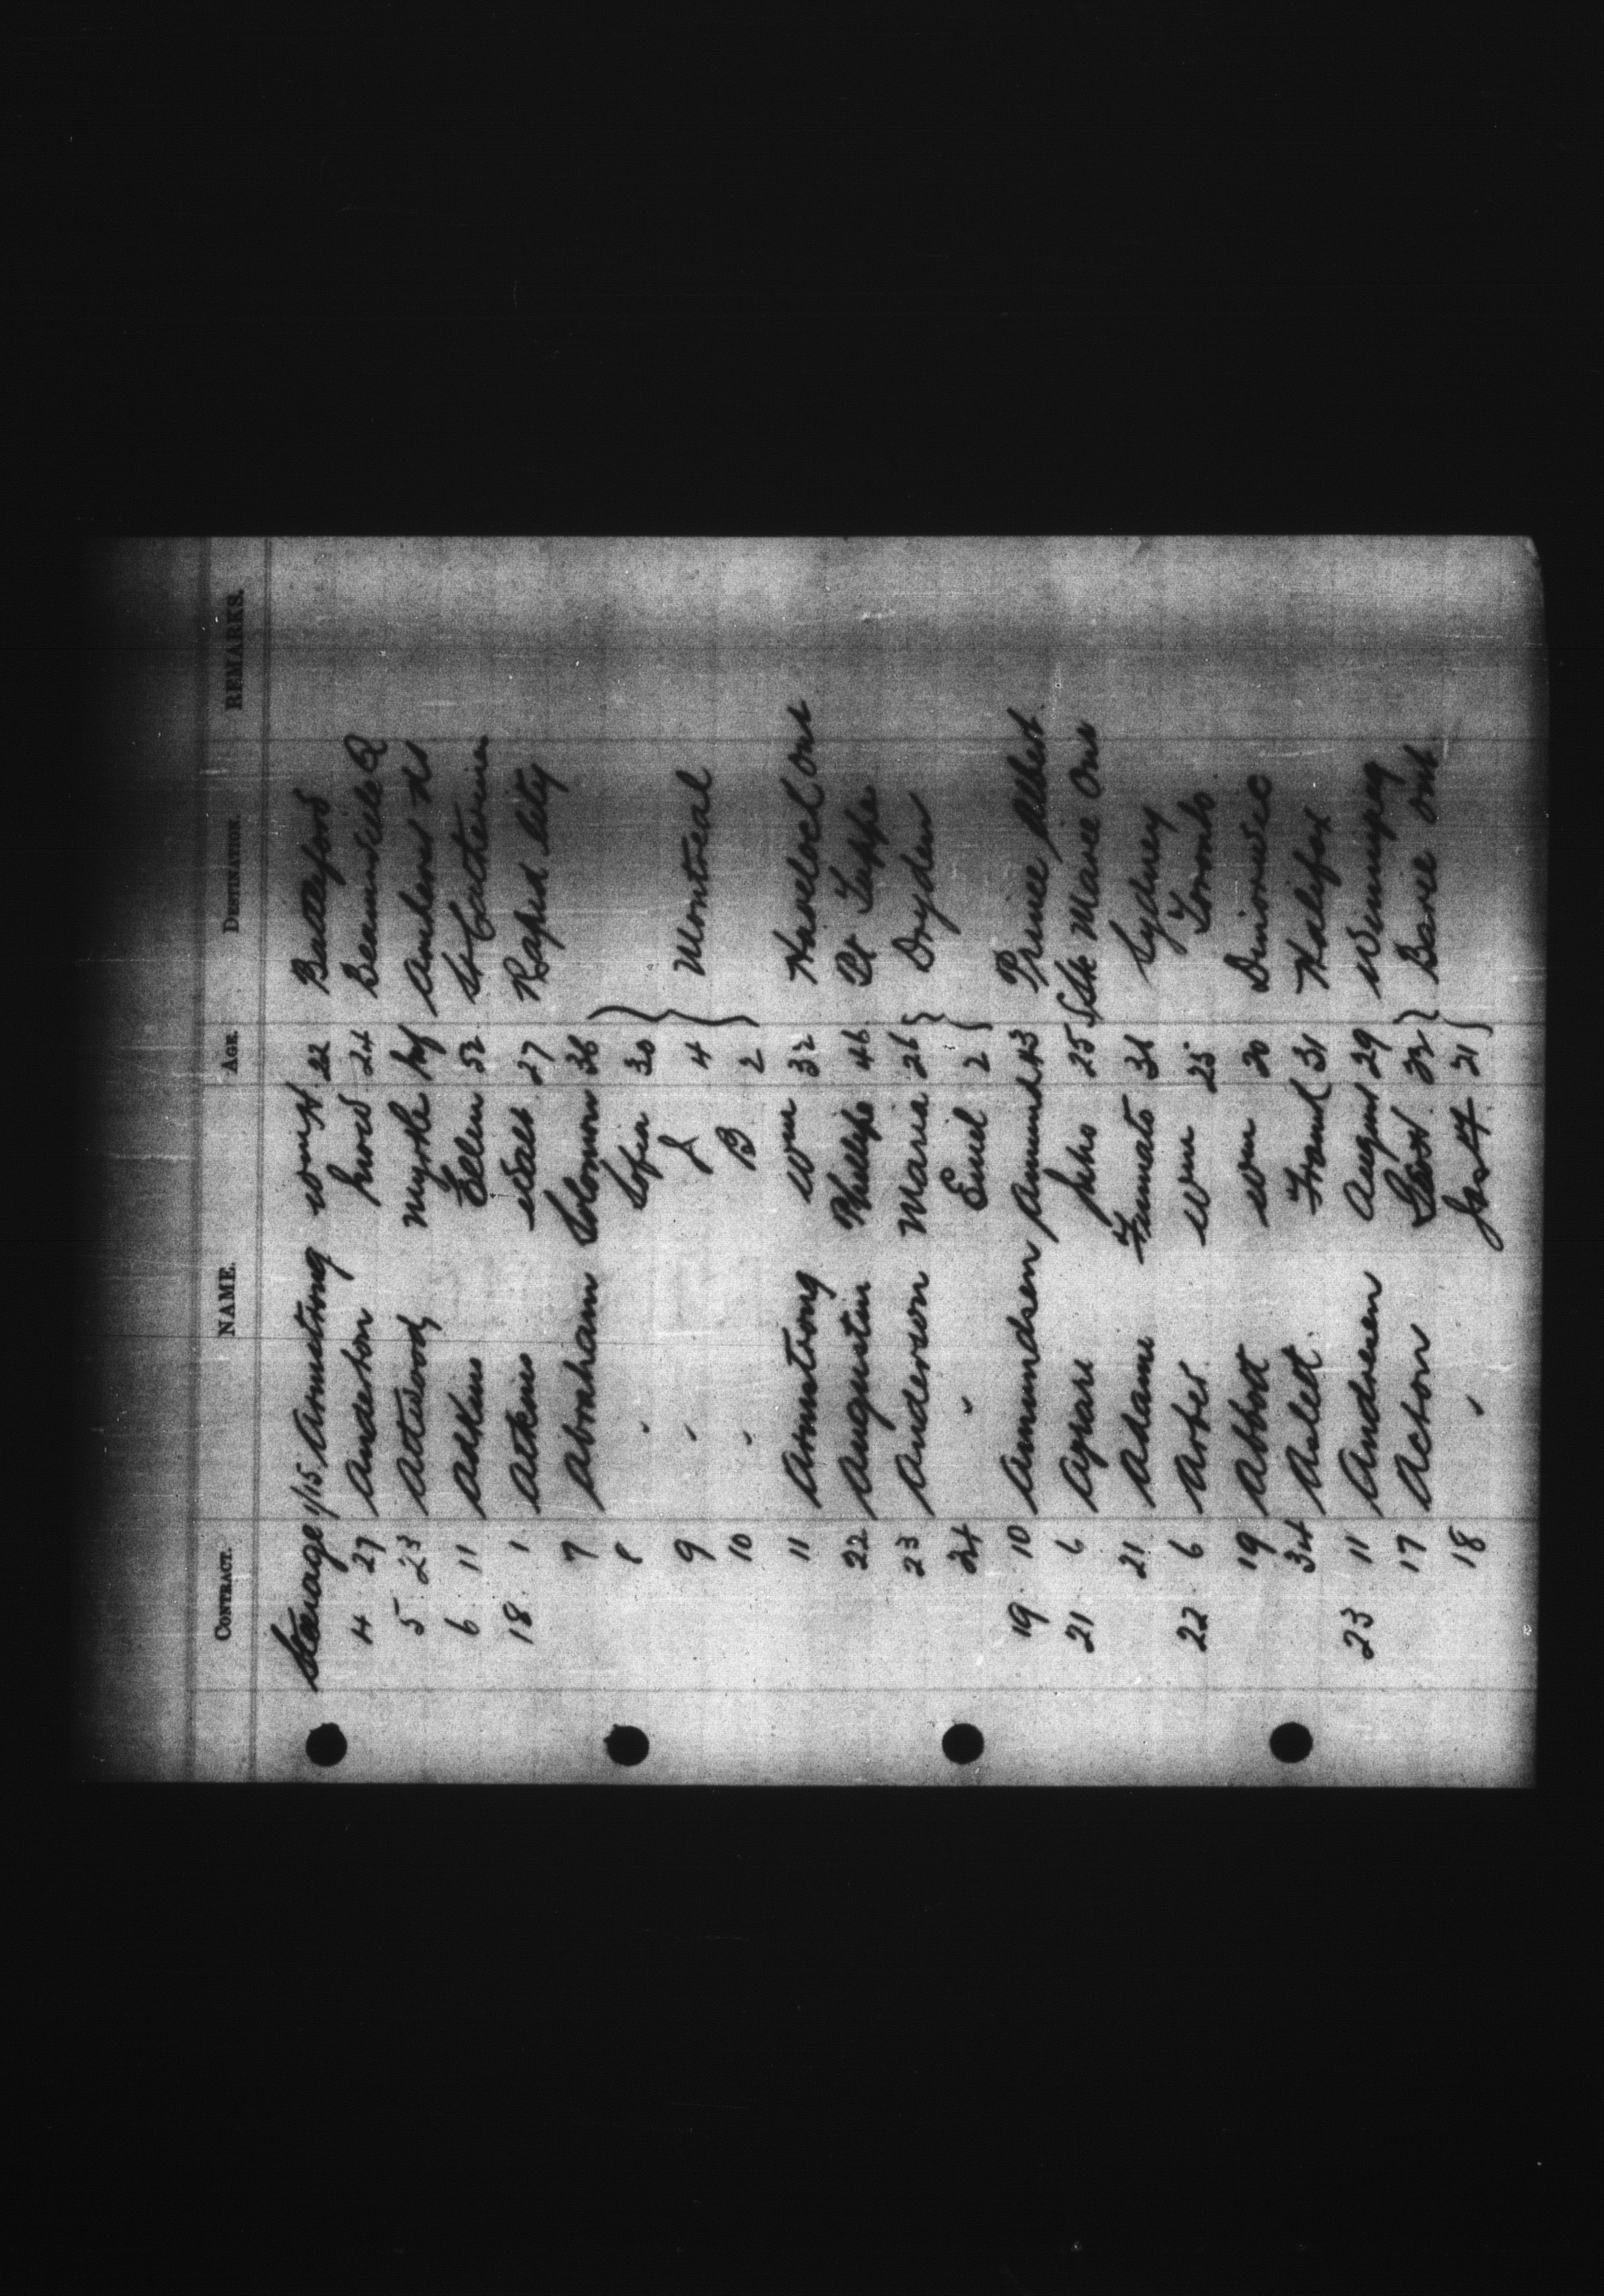 CONTRACT. NAME. AGE. DESTINATION. REMARKS.
Steerage 1/15 Armstrong 22 Battleford
4 27 Anderton 24 Beamsville
5 23 Attwood Myrtle inf Amherst NS
6 11 Adkins Ellen 52 St Catherines
18 1 Atkins Walt 27 Rapid City
7 Abraham Solomon 36
8 " Sofia 30
9 " J 4 Montreal
10 " B 2
11 Armstrong Wm 32 Havelock Ont
22 Augustin Phillipe 46
23 Anderson Maria 26 Dryden
24 " Emil 2
19 10 Amundsen Amund 43 Prince Albert
21 6 Ayrari Juho 25 Slt Marie Ont
21 Adami 36 Sydney
22 6 Arber Wm 25 Toronto
19 Abbott Wm 20 Dinorwic
34 Aslett Frank 31 Halifax
23 11 Andresen August 29 Winnipeg
17 Acton 32 Barrie Ont
18 " 21